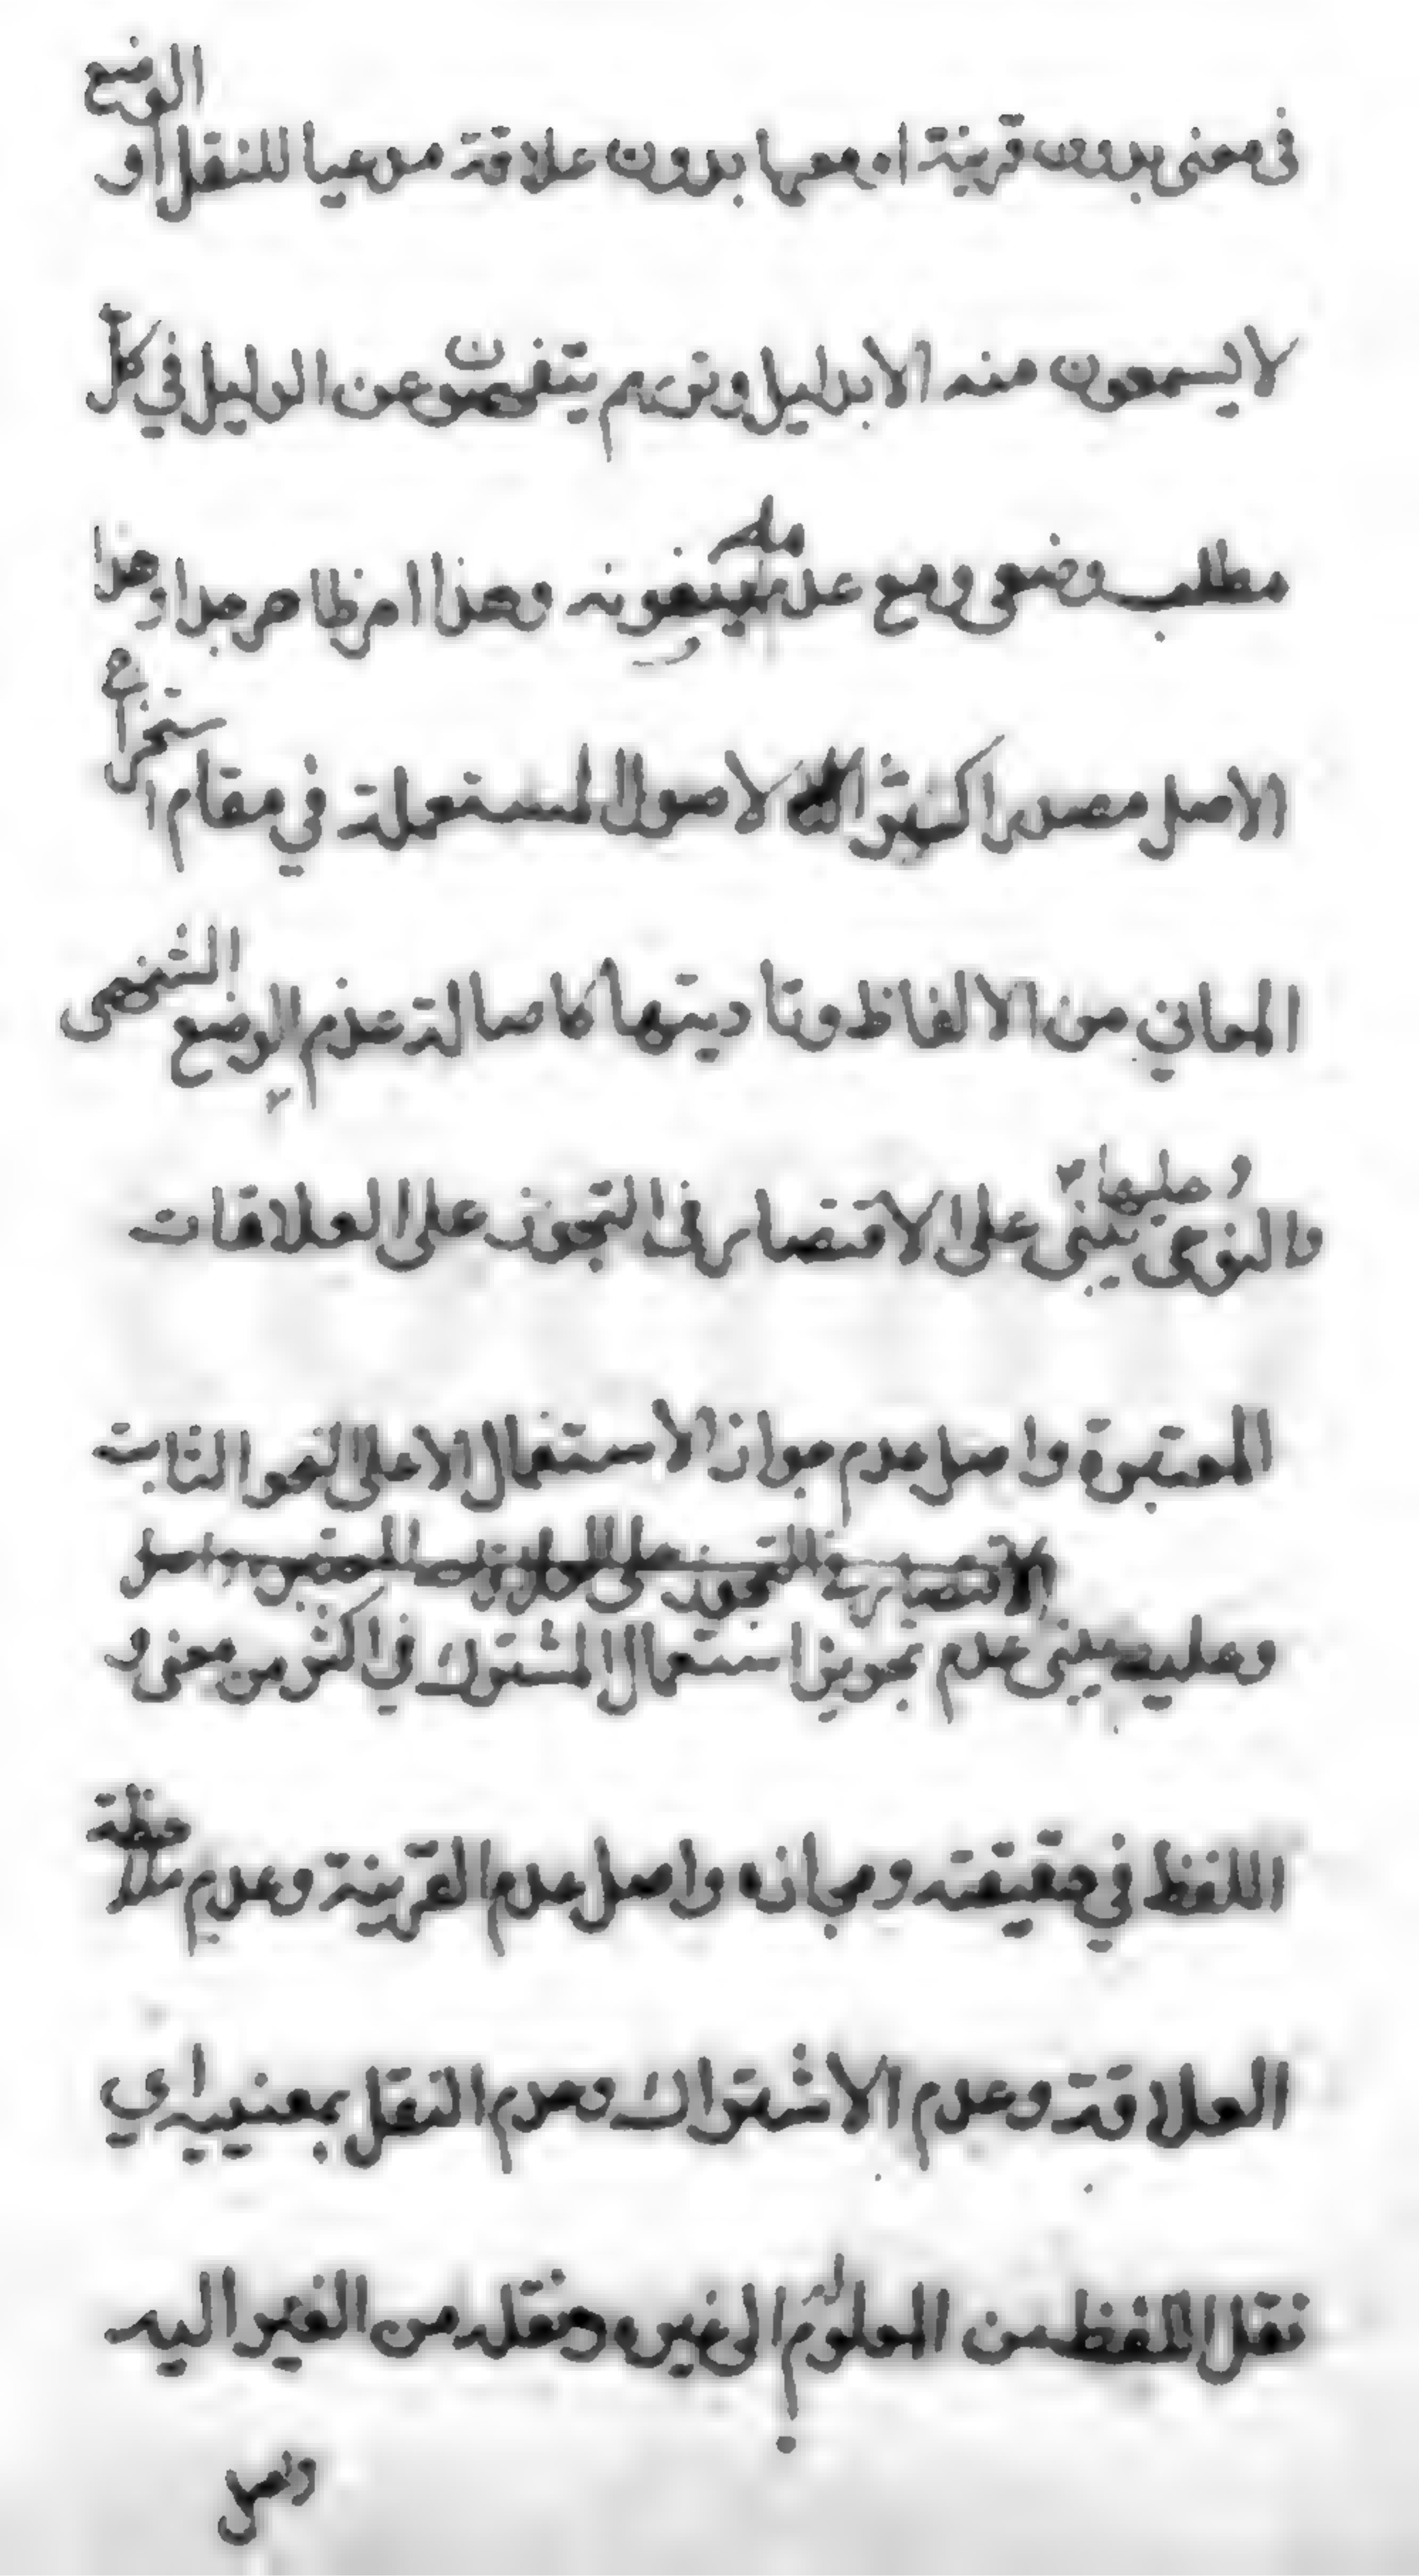 في معنى بدون قرينة او معها بدون علاقة مدعيا للنقل او الوضع
لا يسمعون منه الا بدليل وتريهم يتفحصون عن الدليل في كل
مطلب وضعي ومع عدمه ينفونه وهذا امر ظاهر جدا وهذا
الاصل مصدر اكثر الاصول المستعملة في مقام استخراج
المعاني من الالفاظ وتاديتها كاصالة عدم الوضع الشخصي
والنوعى وعليها يبنى على الاقتصار في التجوز على العلاقات
المعتبرة واصل عدم جواز الاستعمال الا على النحو الثابت
وعليه يبنى عدم تجويز استعمال المشترك في اكثر من معنى و
اللفظ في حقيقته ومجازه واصل عدم القرينة وعدم ملاحظة
العلاقة وعدم الاشتراك وعدم النقل بمعنييه اي
نقل اللفظ من المعلوم الى غيره ونقله من الغير اليه
واصل